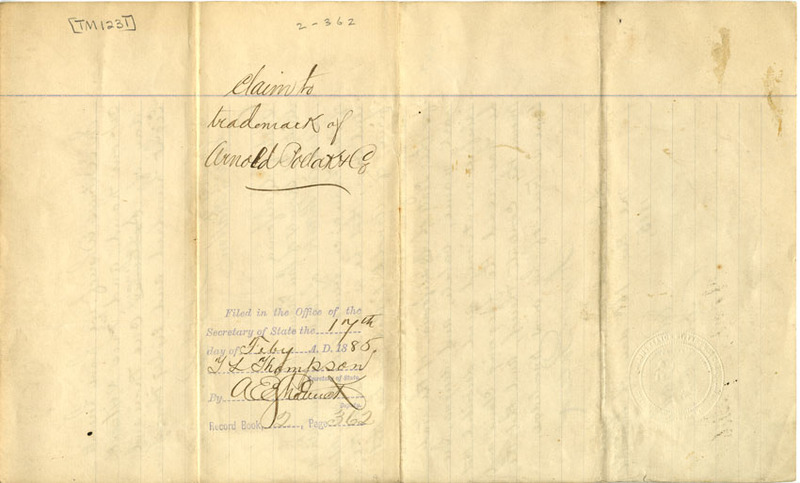 [TM1237]
2-362
Claim to
trademark of
Arnold Pollak & Co
Filed in the Office of the
Secretary of State the 17th
day of Feby A. D. 1885.
T L Thompson
Secretary of State
By A E
Deputy
Record Book, 2, Page 362